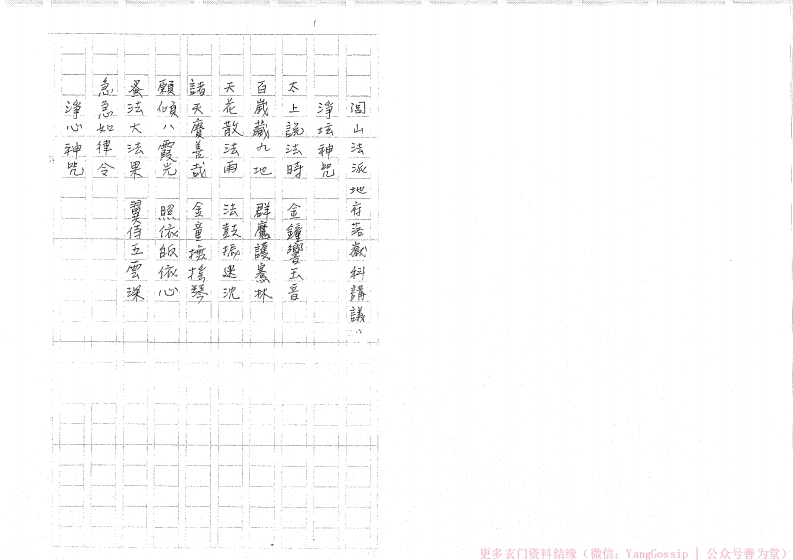 1
閭山法派地府落嶽科講議
淨坛神咒
太上說法時 金鐘響玉音
百歲藏九地 群魔護騫林
天花散法雨 法鼓振迷沈
諸天賡善哉 金童撫搖琴
願傾八霞光 照依皈依心
蚤法大法果 翼侍五雲深
急急如律令
淨心神咒
更多玄门资料结缘（微信：YangGossip | 公众号善为堂）